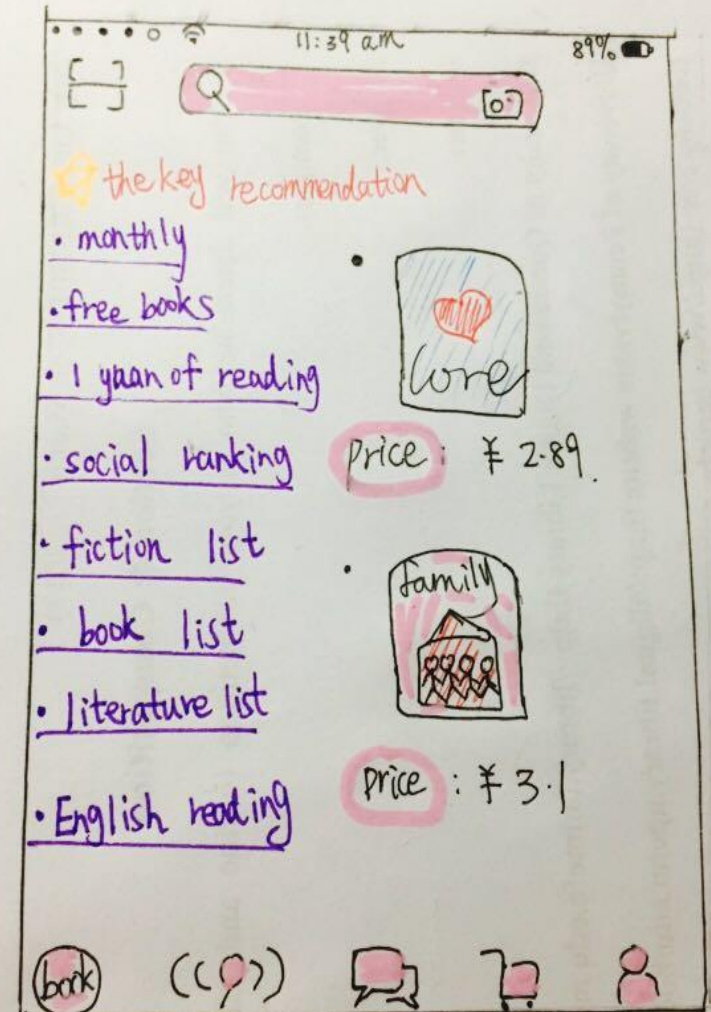 11:39 am 89%
the key recommendation
• monthly
• free books
• 1 yuan of reading
• social ranking
• fiction list
• book list
• literature list
• English reading
love
price: ¥ 2.89.
family
price: ¥ 3.1
book